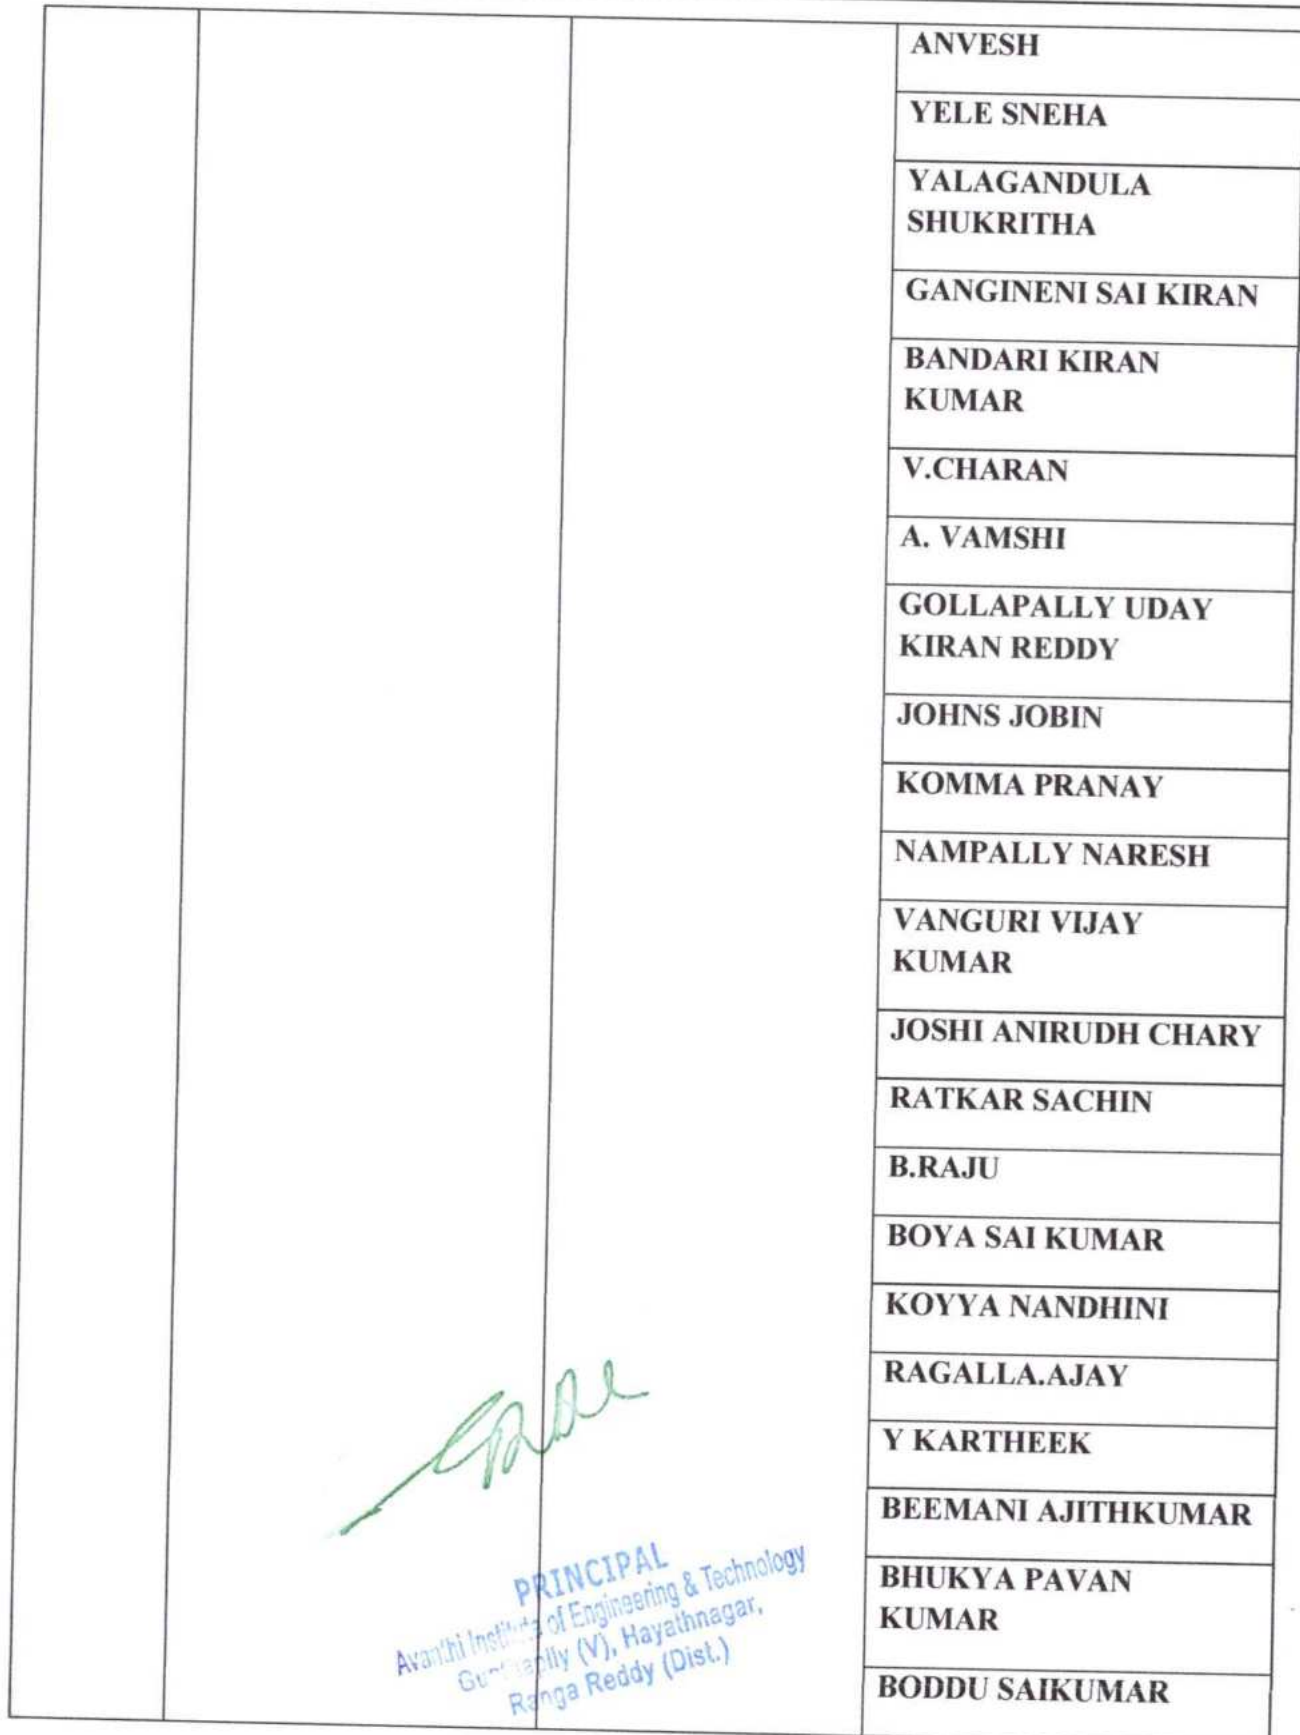 ANVESH
YELE SNEHA
YALAGANDULA
SHUKRITHA
GANGINENI SAI KIRAN
BANDARI KIRAN
KUMAR
V.CHARAN
A. VAMSHI
GOLLAPALLY UDAY
KIRAN REDDY
JOHNS JOBIN
KOMMA PRANAY
NAMPALLY NARESH
VANGURI VIJAY
KUMAR
JOSHI ANIRUDH CHARY
RATKAR SACHIN
B.RAJU
BOYA SAI KUMAR
KOYYA NANDHINI
RAGALLA.AJAY
Y KARTHEEK
BEEMANI AJITHKUMAR
BHUKYA PAVAN
KUMAR
BODDU SAIKUMAR
PRINCIPAL
Avanthi Institute of Engineering & Technology
(V), Hayathnagar,
Ranga Reddy (Dist.)